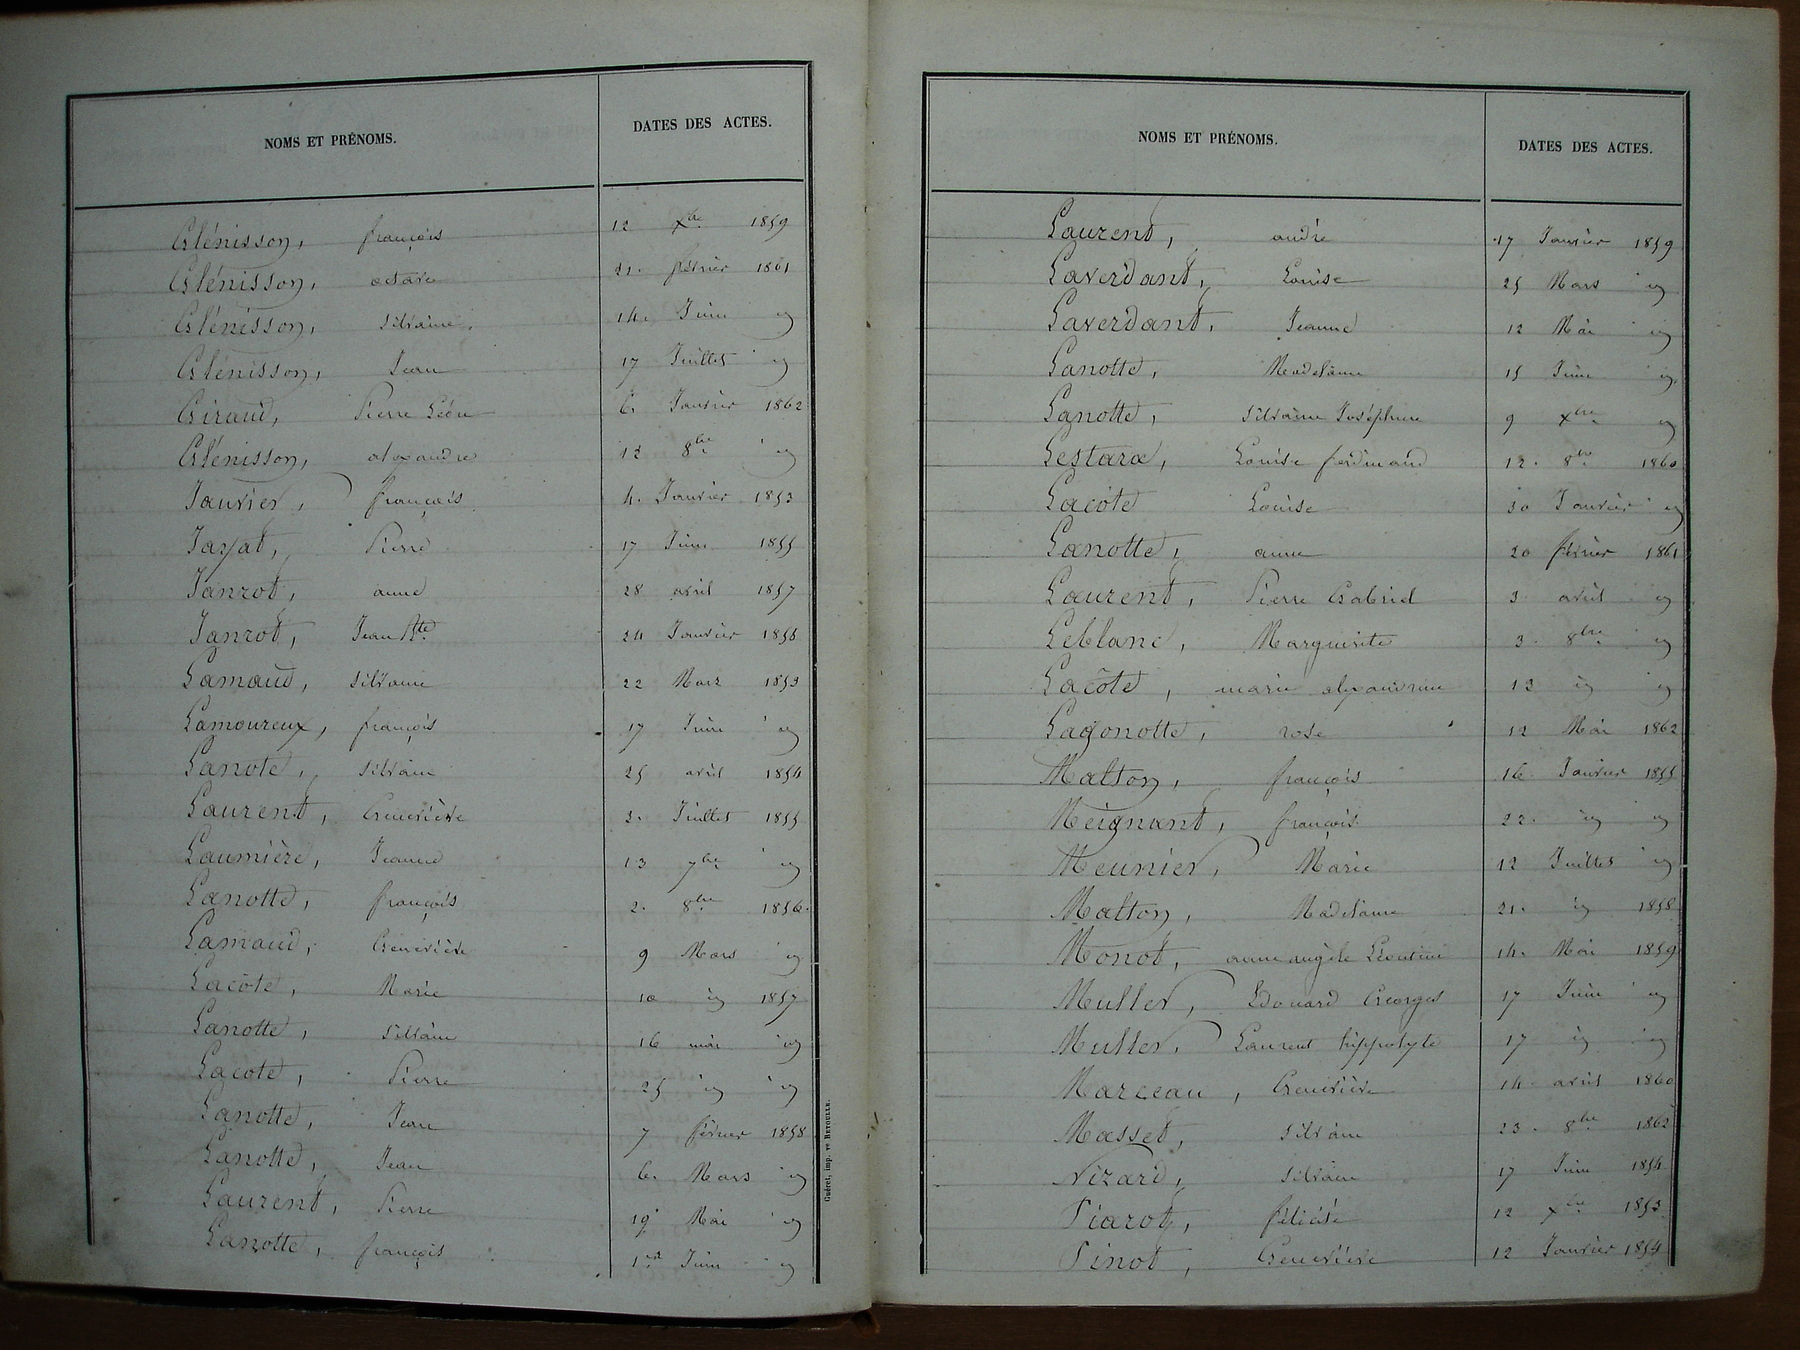 NOMS ET PRÉNOMS. DATES DES ACTES.
Glénisson, françois 12 xbre 1859
Glénisson, octave 21. février 1861
Glénisson, silvaine. 14. Juin id
Glénisson, Jean 17 Juillet id
Giraud, Pierre Léon 6. Janvier 1862
Glénisson, alexandre 12 8bre id
Janvier, françois 4. Janvier 1853
Jayat, Pierre 17 Juin 1855
Janrot, anne 28 avril 1857
Janrot, Jean Bte 24 Janvier 1858
Lamaud, silvaine 22 Mars 1853
Lamoureux, françois 17 Juin id
Lanote, silvain 25 avril 1854
Laurent, Geneviève 2. Juillet 1855
Laumière, Jeanne 13 7bre id
Lanotte, françois 2. 8bre 1856.
Lamaud, Geneviève 9 Mars id
Lacôte, Marie 10 id 1857
Lanotte, silvain 16 mai id
Lacote, Pierre 25 id id
Lanotte, Jean 7 février 1858
Lanotte, Jean 6. Mars id
Laurent, Pierre 19 Mai id
Lanotte, françois 1er Juin id
Guéret, imp. ve BETOULLE.
NOMS ET PRÉNOMS. DATES DES ACTES.
Laurent, andré 17 Janvier 1859
Laverdant, Louise 25 Mars id
Laverdant, Jeanne 12 Mai id
Lanotte, Madelaine 15 Juin id
Lanotte, silvaine Joséphine 9 xbre id
Lestara, Louise ferdinand 12. 8bre 1860
Lacôte Louise 30 Janvier id
Lanotte, anne 20 février 1861
Laurent, Pierre Gabriel 3 avril id
Leblanc, Marguerite 3. 8bre id
Lacôte, marie alexandrine 13 id id
Lagonotte, rose 12 Mai 1862
Malton, françois 16. Janvier 1855
Meignant, françois 22. id id
Meunier, Marie 12 Juillet id
Malton, Madelaine 21. id 1858
Monot, anne angèle Léontine 14. Mai 1859
Muller, Edouard Georges 17 Juin id
Muller, Laurent hippolyte 17 id id
Marceau, Geneviève 14. avril 1860
Masset, silvain 23. 8bre 1862
Nizard, silvain 17 Juin 1854
Piarot, félicité 12 xbre 1853
Pinot, Geneviève 12 Janvier 1854